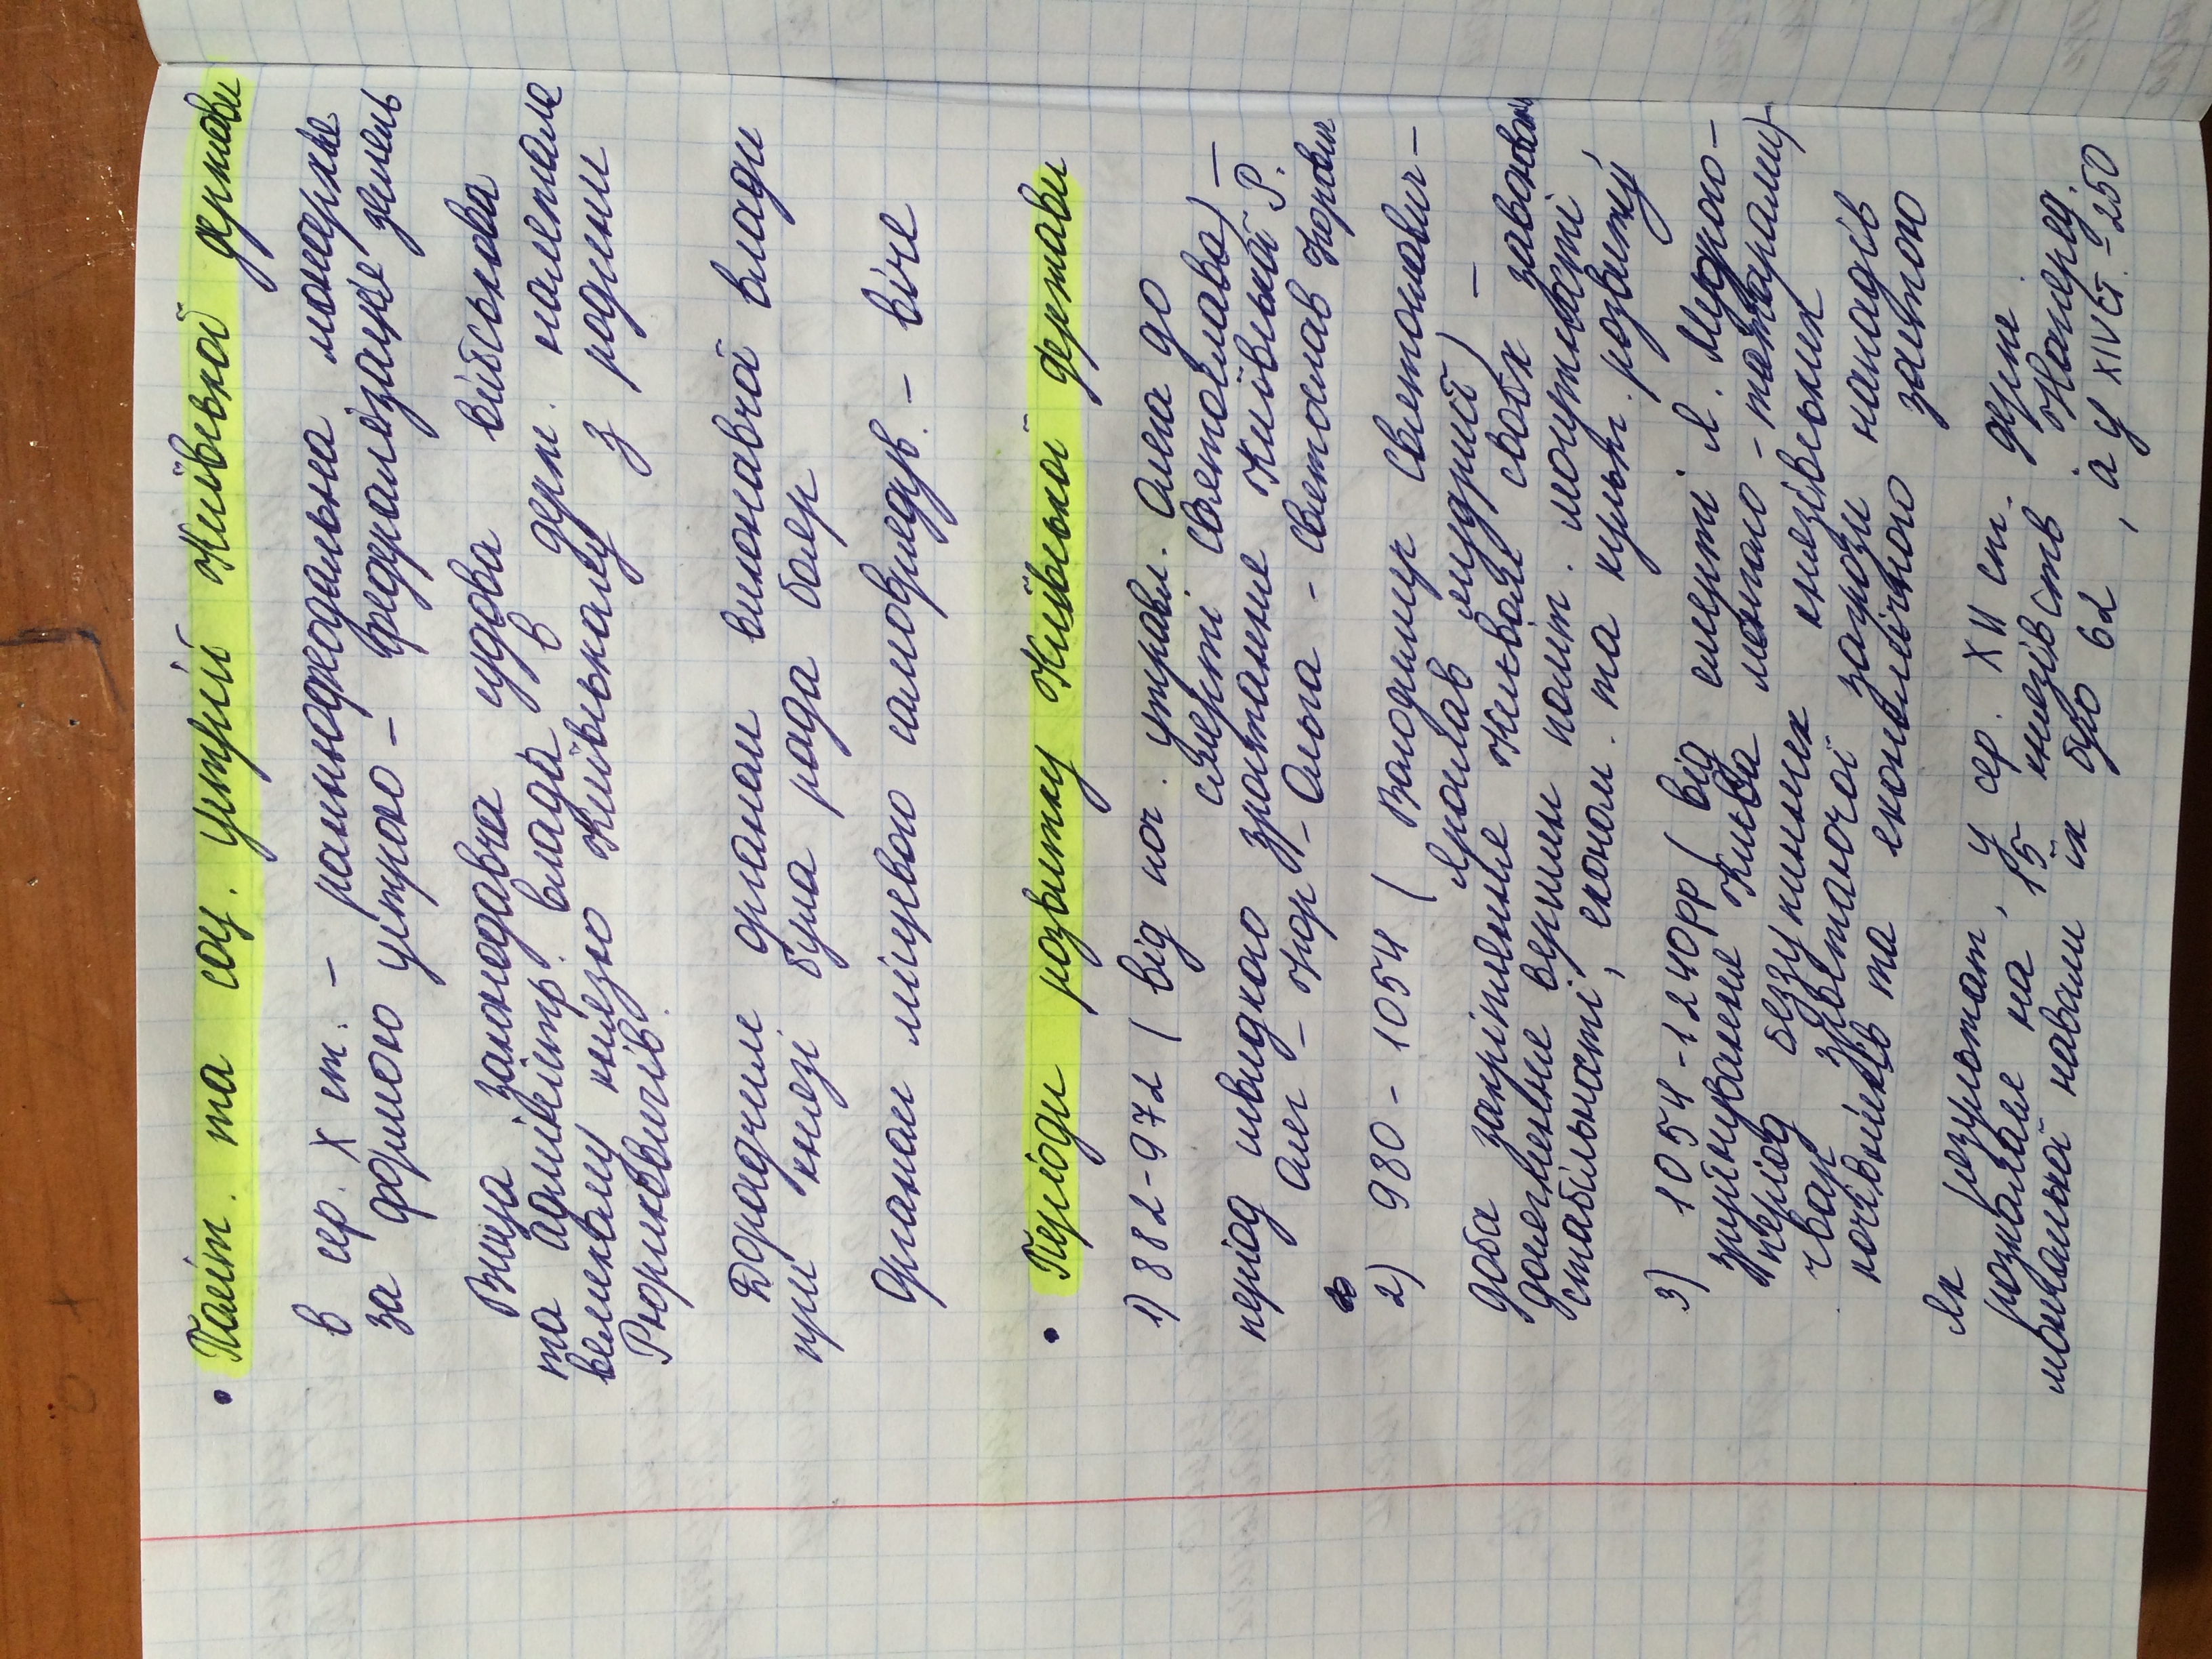 • Політ. та соц. устрій Київської держави
в сер. X ст. – ранньофеодальна монархія
за формою устрою – федералізація земель
Вища, законодавча, судова військова
та адміністр. влада в держ. належала
великому князю Київському з родини
Рюриковичів.
Дорадчим органом виконавчої влади
при князі була рада бояр
Органом місцевого самовряdув. – віче
• Періоди розвитку Київської держави
1) 882-972 ( від поч. управл. Олега до
смерті Святослава) –
період швидкого зростання Київської Р.
Олег – Ігор – Ольга – Святослав Ігорович
2) 980 – 1054 ( Володимир Святославич –
Ярослав мудрий) –
доба закріплення Києвом своїх завоювань
досягнення вершин політ. могутності,
стабільності, економ. та культ. розвитку
3) 1054-1240рр ( від смерті Я. Мудрого –
зруйнування Києва монголо-татарами) –
період беззупинних князівських
чвар, зростаючої загрози нападів
кочівників та економічного застою
Як результат, у сер. XII ст. держ.
розпалася на 15 князівств. Наперед.
монгольської навали їх було 62, а у XIV ст. – 250